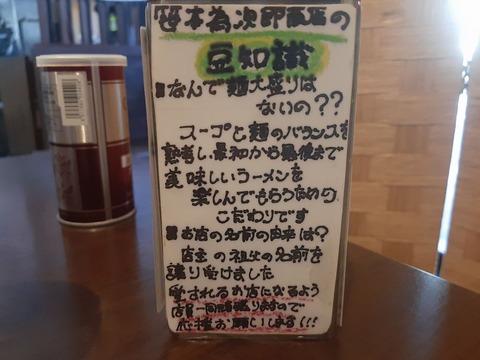 笹本為次郎商店の
豆知識
■なんで麺大盛りは
ないの??
スープと麺のバランスを
熟考し、最初から最後まで
美味しいラーメンを
楽しんでもらうための
こだわりです
■お店の名前の由来は?
店主の祖父の名前を
譲り受けました
愛されるお店になるよう
店員一同頑張りますので
応援お願いします!!!